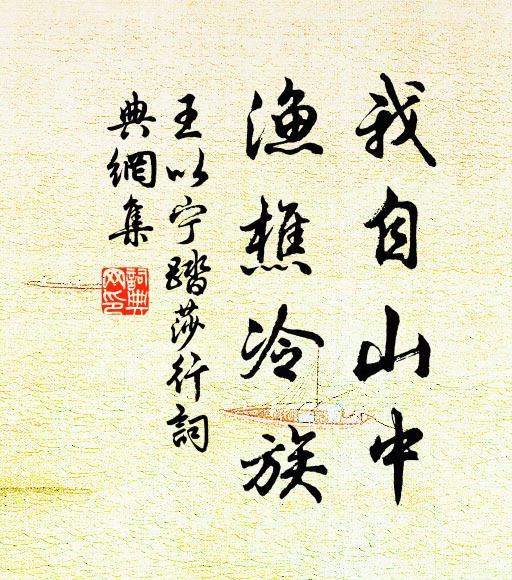 我自山中
漁樵冷族
王以宁踏莎行詞
典網集
詞典
网印